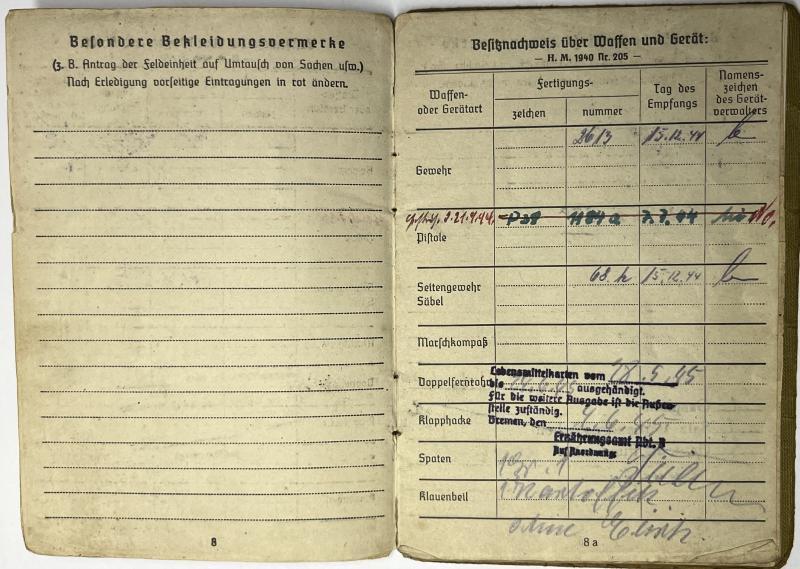 Besondere Bekleidungsvermerke
(z. B. Antrag der Feldeinheit auf Umtausch von Sachen usw.)
Nach Erledigung vorseitige Eintragungen in rot ändern.
8
Besitznachweis über Waffen und Gerät:
— H. M. 1940 Nr. 205 —
Waffen- oder Gerätart
Fertigungs-
zeichen
nummer
Tag des Empfangs
Namens- zeichen des Gerät- verwalters
Gewehr
2613 15.12.44
21.9.44. P38 1184a 7.7.44
Pistole
Seitengewehr
Säbel
68.h 15.12.44
Marschkompaß
Doppelfernrohr
Lebensmittelkarten vom 28.5.45
bis ausgehändigt.
Für die weitere Ausgabe ist die Außen-
stelle zuständig.
Bremen, den
Ernährungsamt Abt. B
Auf Anordnung:
Klapphacke
Spaten
Klauenbeil
ohne
8 a